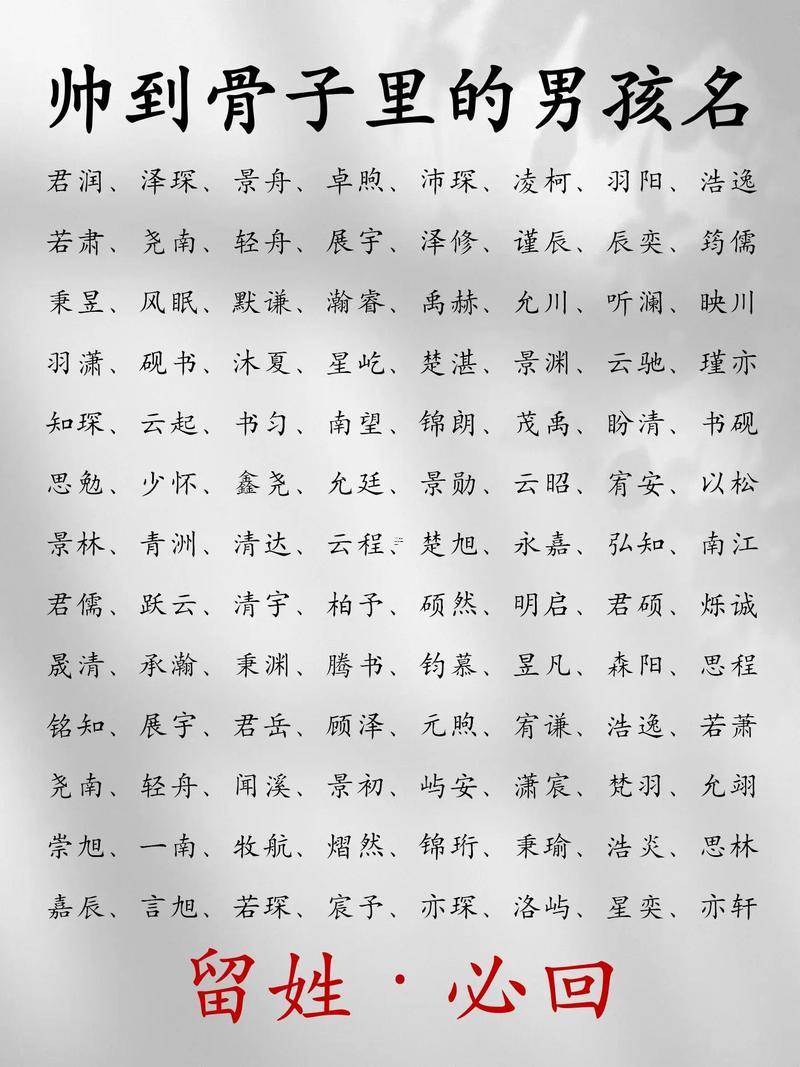 帅到骨子里的男孩名
君润、泽琛、景舟、卓煦、沛琛、凌柯、羽阳、浩逸
若肃、尧南、轻舟、展宇、泽修、谨辰、辰奕、筠儒
秉昱、风眠、默谦、瀚睿、禹赫、允川、听澜、映川
羽潇、砚书、沐夏、星屹、楚湛、景渊、云驰、瑾亦
知琛、云起、书匀、南望、锦朗、茂禹、盼清、书砚
思勉、少怀、鑫尧、允廷、景勋、云昭、宥安、以松
景林、青洲、清达、云程、楚旭、永嘉、弘知、南江
君儒、跃云、清宇、柏予、硕然、明启、君硕、烁诚
晟清、承瀚、秉渊、腾书、钧慕、昱凡、森阳、思程
铭知、展宇、君岳、顾泽、元煦、宥谦、浩逸、若萧
尧南、轻舟、闻溪、景初、屿安、潇宸、梵羽、允翊
崇旭、一南、牧航、熠然、锦珩、秉瑜、浩炎、思林
嘉辰、言旭、若琛、宸予、亦琛、洛屿、星奕、亦轩
留姓·必回